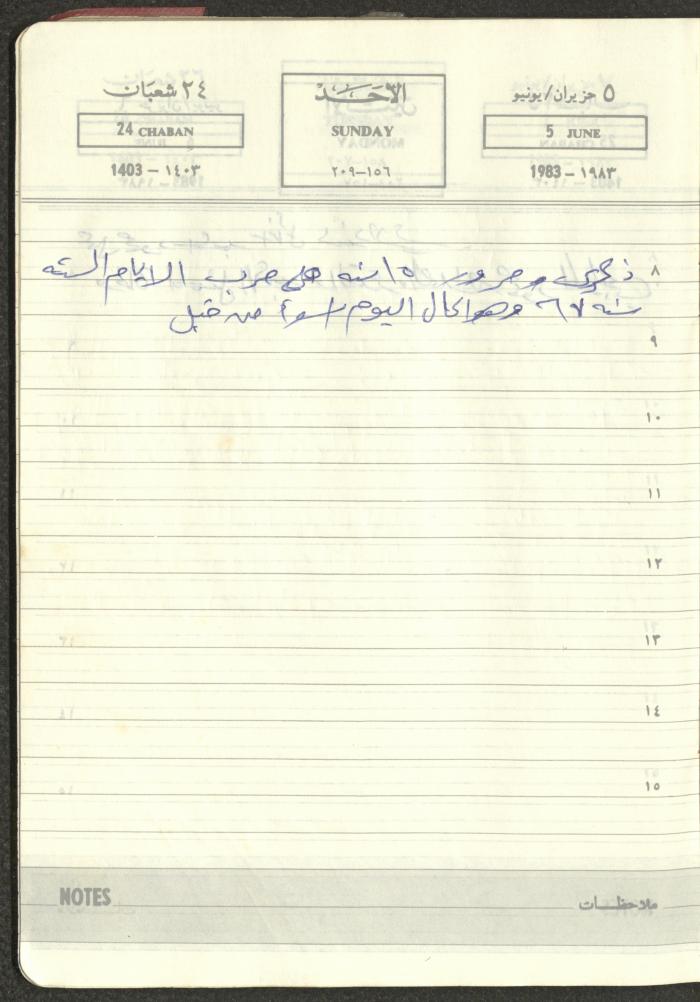 ٢٤ شعبان
الأحد
٥ حزيران/يونيو
24 CHABAN
SUNDAY
5 JUNE
1403 – ١٤٠٣
٢٠٩–١٥٦
1983 – ١٩٨٣
٨
ذكرى مرور ١٥ سنه على حرب الايام السته
سنه ٦٧ وهو الحال اليوم اسوأ من قبل
٩
١٠
١١
١٢
١٣
١٤
١٥
NOTES
ملاحظات